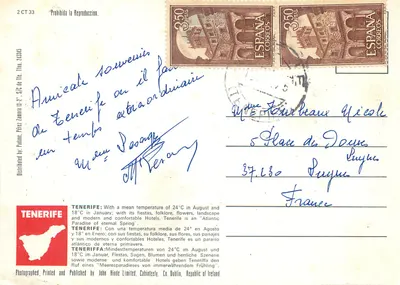 2 CT 33
Prohibida la Reproducción.
2.50
ESPAÑA
CORREOS
2.50
ESPAÑA
CORREOS
Amicale souvenir
de Tenerife où il fait
un temps extraordinaire
Mme
Mme Nicole
5 Place des
37.130
France
TENERIFE
TENERIFE: With a mean temperature of 24°C in August and
18°C in January; with its fiestas, folklore, flowers, landscape
and modern and comfortable Hotels, Tenerife is an "Atlantic
Paradise of eternal Spring".
TENERIFE: Con una temperatura media de 24° en Agosto
y 18° en Enero; con sus fiestas, su folklore, sus flores, sus paisajes
y sus modernos y confortables Hoteles, Tenerife es un paraíso
atlántico de eterna primavera.
TENERIFFA: Mit seiner mittleren Temperatur von 24°C im August
und 18°C im Januar, Fiestas, Sagen, Blumen und herrliche Szenerie
sowie moderne und komfortable Hotels geben Teneriffa den
Ruf eines "Meeresparadieses von immerwährendem Frühling".
Photographed, Printed and Published by John Hinde Limited, Cabinteely, Co. Dublin, Republic of Ireland